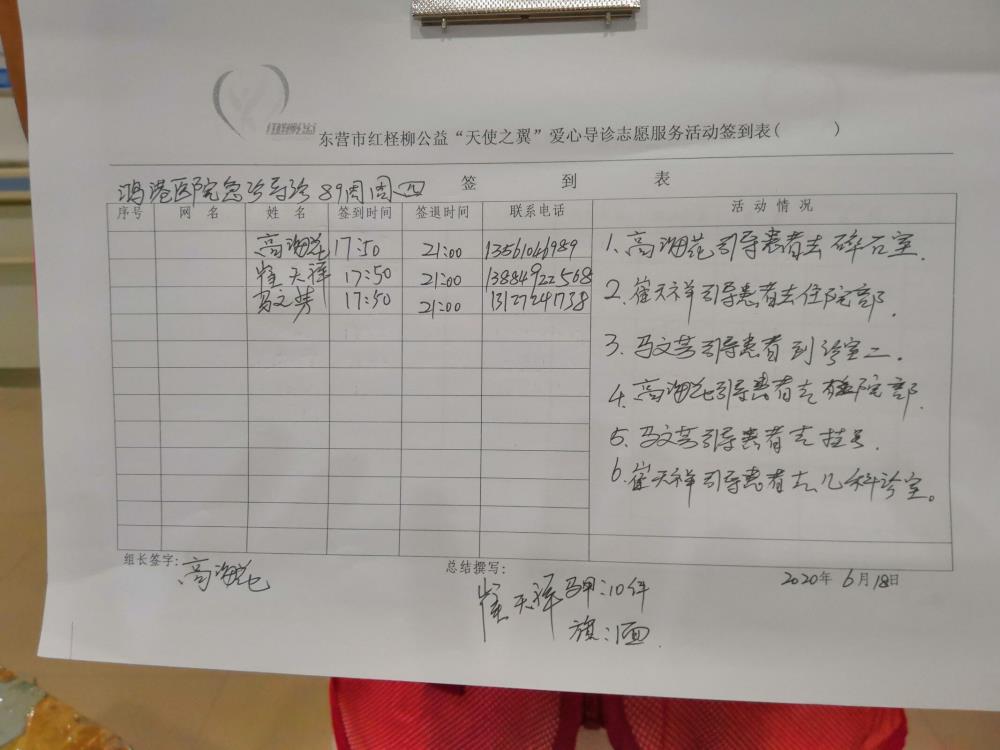 红柽柳公益
东营市红柽柳公益“天使之翼”爱心导诊志愿服务活动签到表(      )
签 到 表
鸿港医院急诊导诊 89周周四
序号 网 名 姓 名 签到时间 签退时间 联系电话 活 动 情 况
高海花 17:50 21:00 13561046989
崔天祥 17:50 21:00 13884922568
马文芳 17:50 21:00 1312724738
1、高海花引导患者去碎石室.
2、崔天祥引导患者去住院部.
3、马文芳引导患者到诊室二.
4、高海花引导患者去住院部.
5、马文芳引导患者去挂号.
6、崔天祥引导患者去儿科诊室。
组长签字: 高海花
总结撰写: 崔天祥
2020年 6月18日
马甲:10件
旗:1面